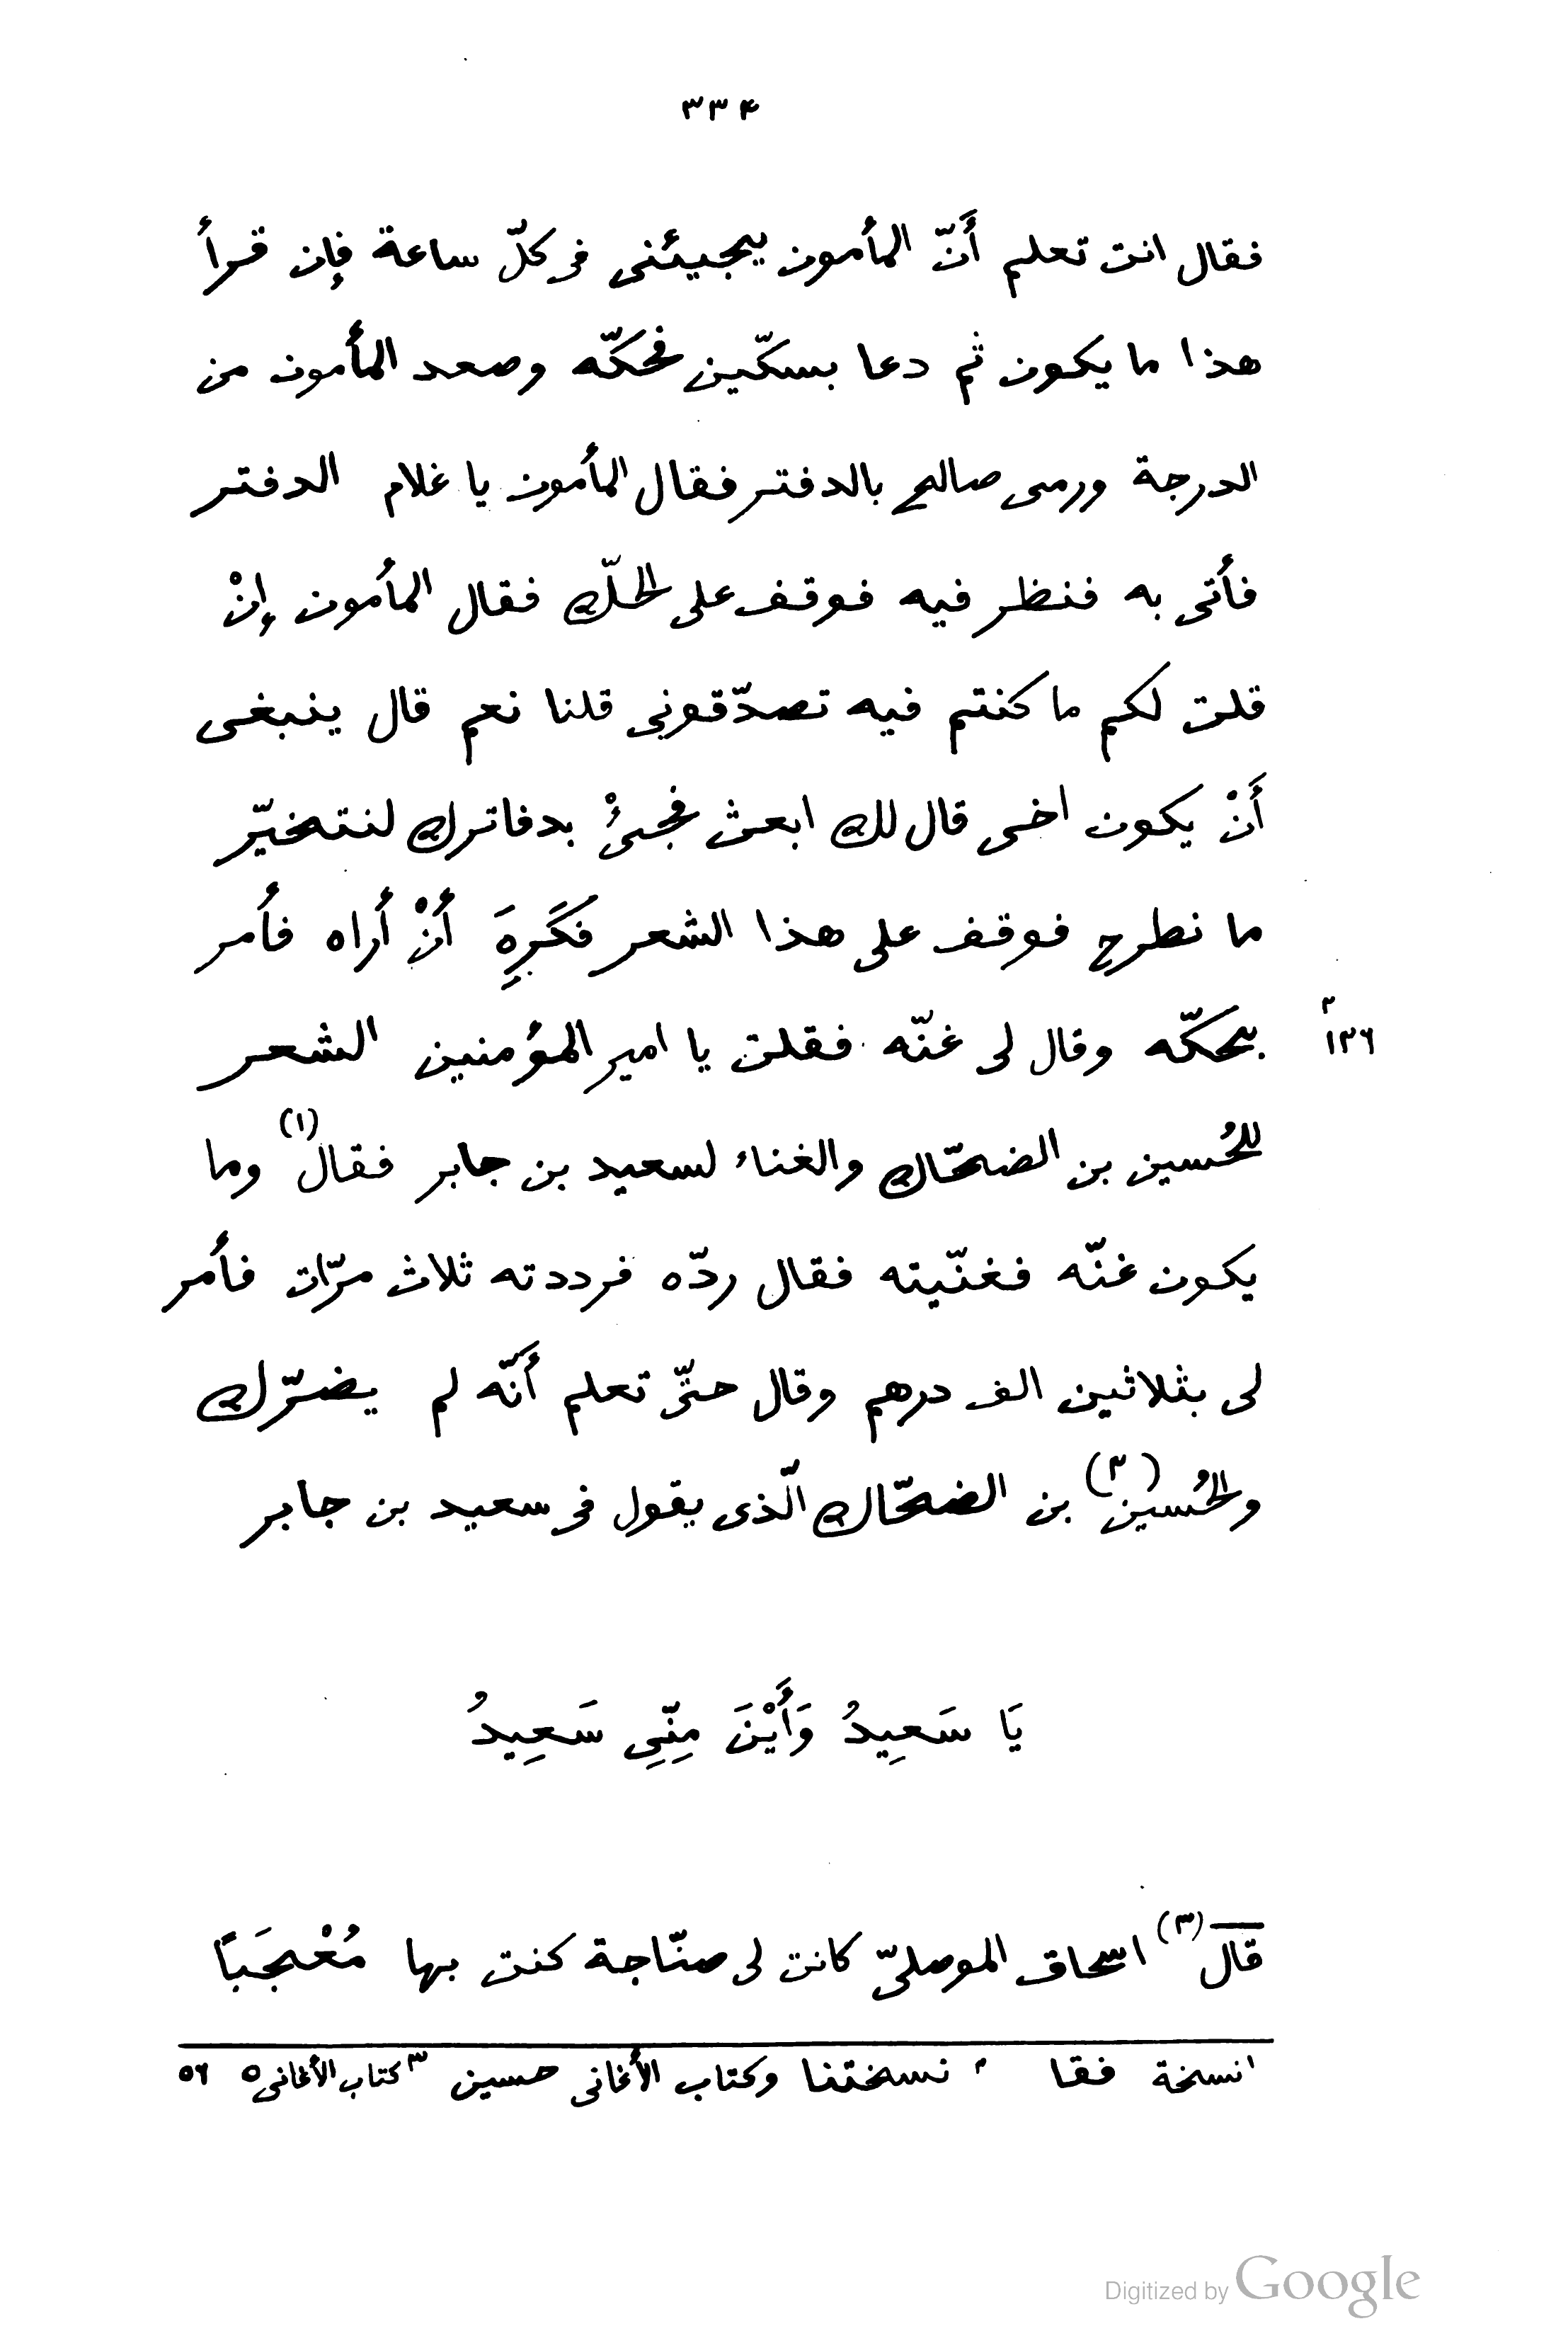 ٣٣۴
فقال انت تعلم أَنّ المأمون يجيئنى فى كلّ ساعة فإن قرأ
هذا ما يكون ثم دعا بسكّين فحكّه وصعد المأمون من
الدرجة ورمى صالح بالدفتر فقال المأمون يا غلام الدفتر
فأتى به فنظر فيه فوقف على الحكّ فقال المأمون إنْ
قلت لكم ما كنتم فيه تصدّقونى قلنا نعم قال ينبغى
أَنْ يكون اخى قال لك ابعث فجئْ بدفاترك لنتخيّر
ما نطرح فوقف على هذا الشعر فكَرِهَ أنْ أراه فأمر
بحكّه وقال لى غنّه فقلت يا امير المؤمنين الشعر
١٣٦ ٢
للحُسين بن الضحّاك والغناء لسعيد بن جابر فقال (١) وما
يكون غنّه فغنّيته فقال ردّه فرددته ثلاث مرّات فأمر
لى بثلاثين الف درهم وقال حتّى تعلم أَنّه لم يضرّك
والحُسين (٢) بن الضحّاك الّذى يقول فى سعيد بن جابر
يَا سَعِيدُ وَأَيْنَ مِنِّى سَعِيدُ
قال (٣) اسحاق الموصلىّ كانت لى صنّاجة كنت بها مُعْجَبًا
١ نسخة فقا ٢ نسختنا وكتاب الأغانى حسين ٣ كتاب الأغانى ٥ ٥٦
Digitized by Google